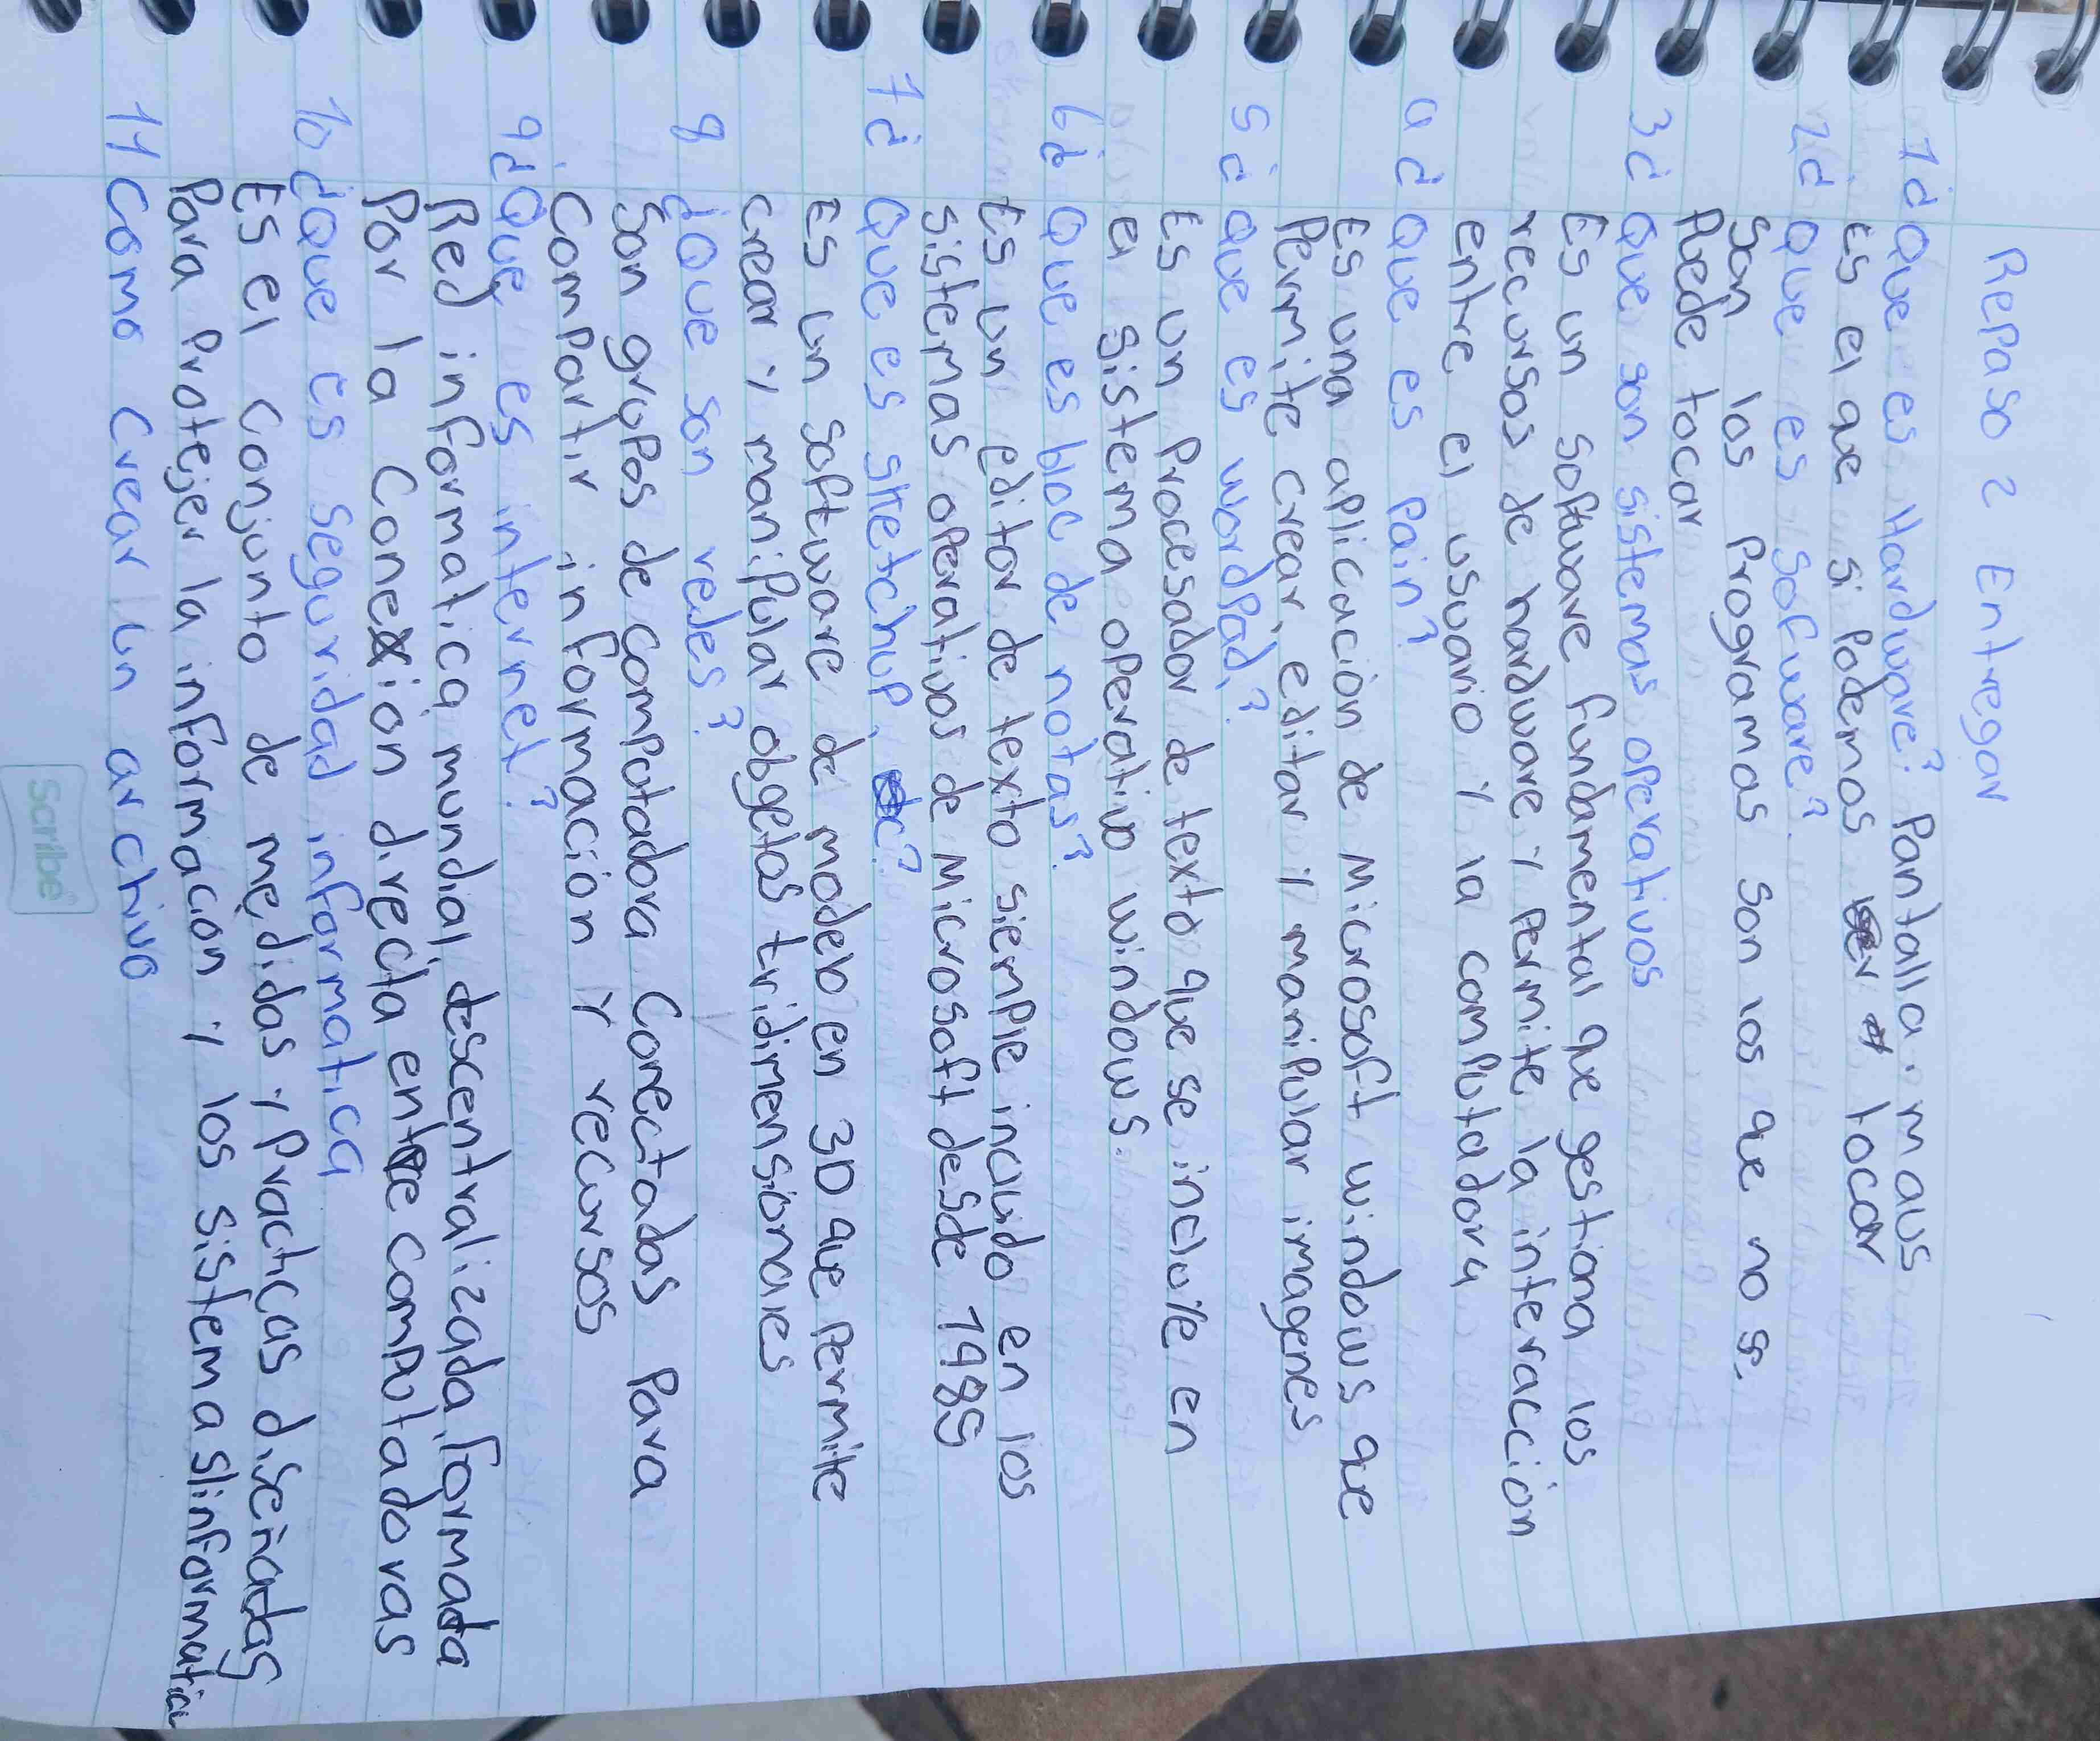 Repaso 2 Entregar
1 ¿Que es Hardware? Pantalla. maus
Es el que si Podemos tocar
2 ¿Que es sofware?
Son los Programas son los que no se
Puede tocar
3 ¿Que son sistemas operativos
Es un software fundamental que gestiona los
recursos de hardware y permite la interaccion
entre el usuario y la computadora
4 ¿Que es Pain?
Es una aplicación de Microsoft windows que
Permite crear, editar y manipular imagenes
5 ¿Que es wordPad?
Es un Procesador de texto que se incluye en
el sistema operativo windows.
6 ¿Que es bloc de notas?
Es un editor de texto siemple incluido en los
sistemas operativos de Microsoft desde 1985
7 ¿Que es sketchup, ?
Es un software de modelo en 3D que Permite
crear y maniPular obgetos tridimensionales
8 ¿Que son redes?
Son grupos de computadora Conectadas Para
Compartir información y recursos
9 ¿Que es internet?
Red informatica mundial, descentralizada, formada
Por la Conexion directa entre computadoras
10 ¿Que es seguridad informatica
Es el conjunto de medidas y Practicas diseñadas
Para Protejer la informacon y los sistemas informatica
11 Como Crear un archivo
Scribe